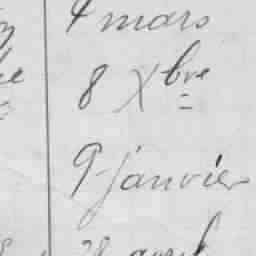 4 mars
8 Xbre
9 janvier
28 avril